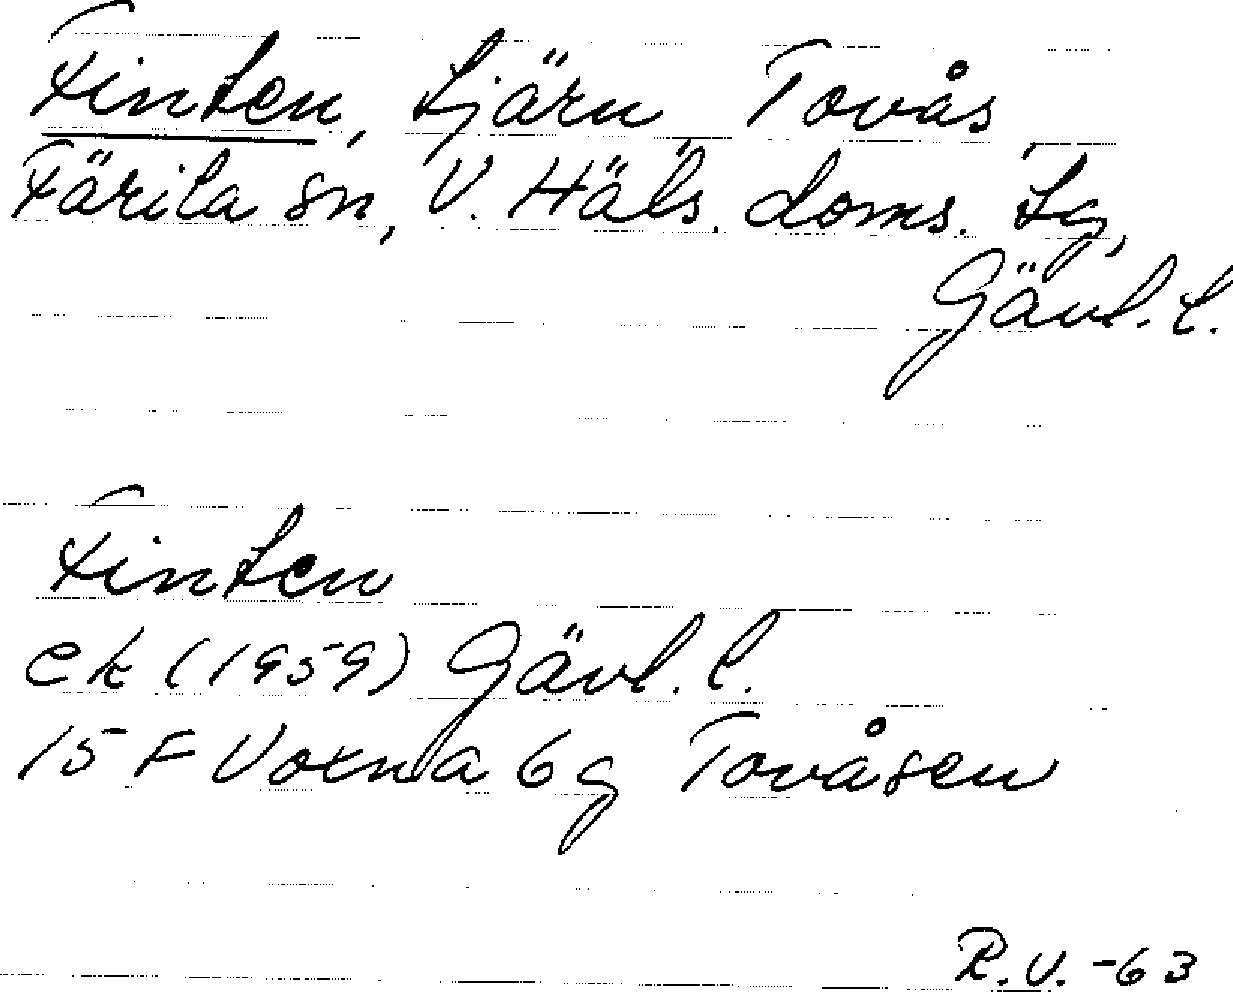 Finten, tjärn, Tovås
Färila sn, V. Häls. doms. tg,
Gävl. l.
Finten
ek (1959) Gävl. l.
15 F Voxna 6g Tovåsen
R.V. -63